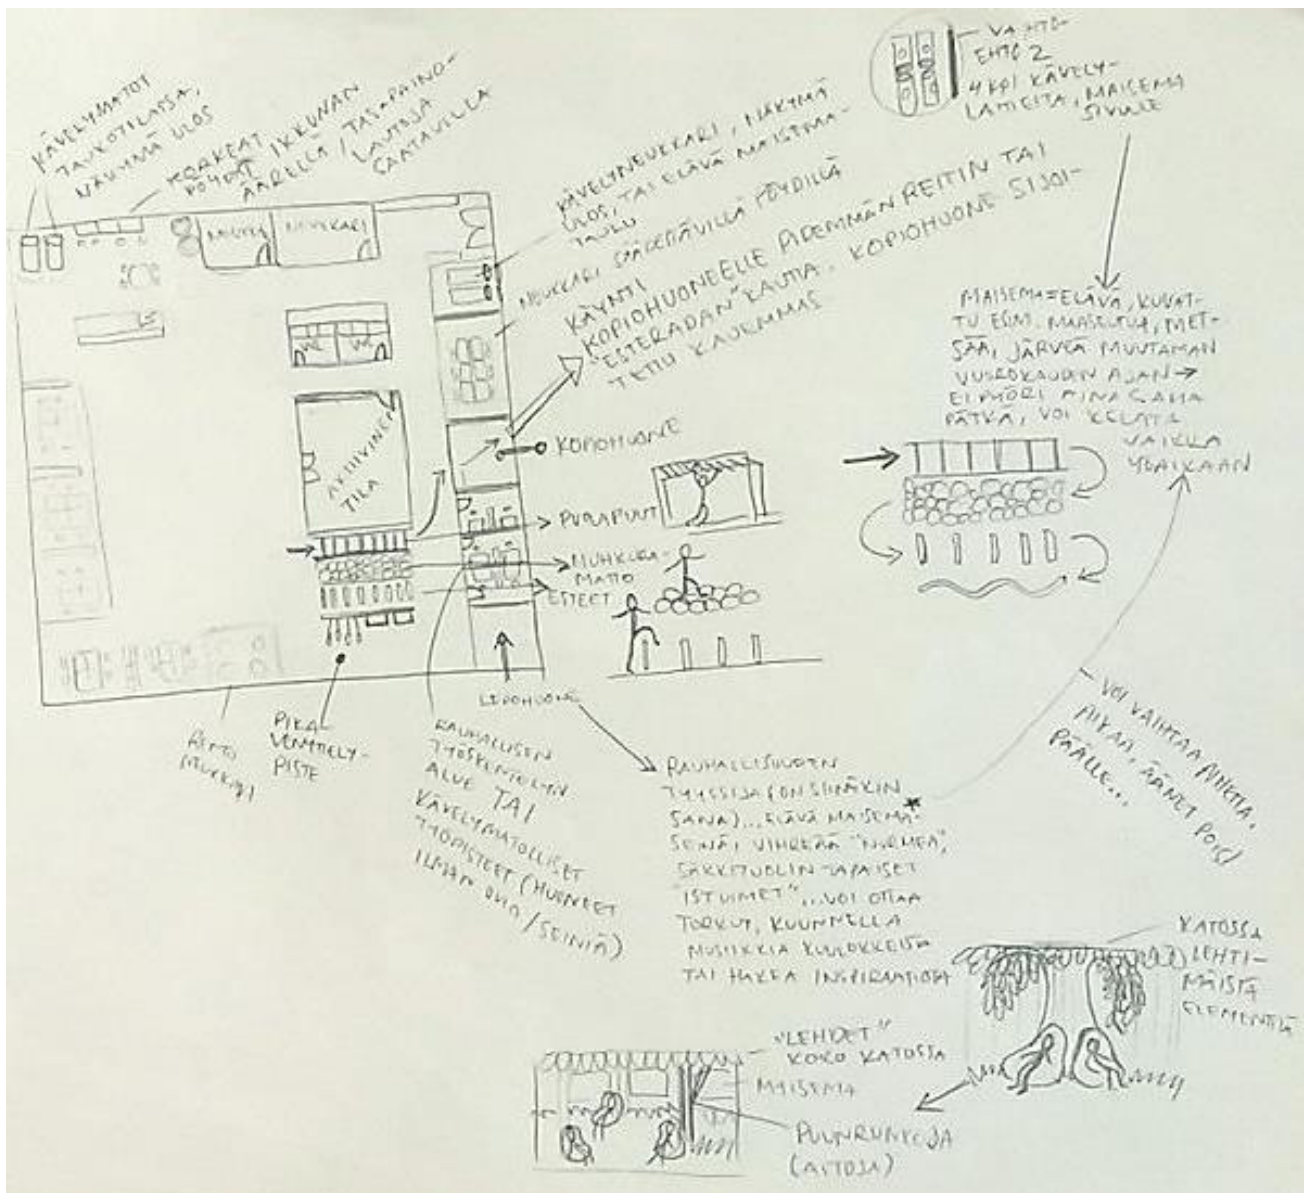 KÄVELYMATOT
TAUKOTILASSA,
NÄKYMÄ ULOS
KORKEAT
PÖYDÄT IKKUNAN
ÄÄRELLÄ / TASAPAINO-
LAUTOJA
SAATAVILLA
KÄVELYNEUKKARI, NÄKYMÄ
ULOS, TAI ELÄVÄ MAISEMA-
TAULU
NEUKKARI SÄÄDETTÄVILLÄ PÖYDILLÄ
KÄYNTI
KOPIOHUONEELLE PIDEMMÄN REITIN TAI
"ESTERADAN" KAUTTA. KOPIOHUONE SIJOI-
TETTU KAUEMMAS
VAIHTO-
EHTO 2
4 KPL KÄVELY-
LAITTEITA, MAISEMA
SIVULLE
MAISEMA=ELÄVÄ, KUVAT-
TU ESIM. MAASEUTUA, MET-
SÄÄ, JÄRVEÄ MUUTAMAN
VUOROKAUDEN AJAN →
EI PYÖRI AINA SAMA
PÄTKÄ, VOI KELATA
VAIKKA
YÖAIKAAN
NEUKKARI
WC
WC
AKTIIVINEN
TILA
KOPIOHUONE
PUOLAPUUT
MUHKURA-
MATTO
ESTEET
LEPOHUONE
RENTO
NEUKKARI
PIKA
VENYTTELY-
PISTE
RAUHALLISEN
TYÖSKENTELYN
ALUE TAI
KÄVELYMATOLLISET
TYÖPISTEET (HUONEET
ILMAN OVIA / SEINIÄ)
RAUHALLISUUDEN
TYYSSIJA (ON SIINÄKIN
SANA)... ELÄVÄ MAISEMA*
SEINÄ, VIHREÄÄ "NURMEA",
SÄKKITUOLIN TAPAISET
"ISTUIMET"... VOI OTTAA
TORKUT, KUUNNELLA
MUSIIKKIA KUULOKKEISTA
TAI HAKEA INSPIRAATIOTA
VOI VAIHTAA AIHETTA,
AIKAA, ÄÄNET POIS/
PÄÄLLE...
KATOSSA
LEHTI-
MÄISTÄ
ELEMENTTIÄ
"LEHDET"
KOKO KATOSSA
MAISEMA
PUUNRUNKOJA
(AITOJA)